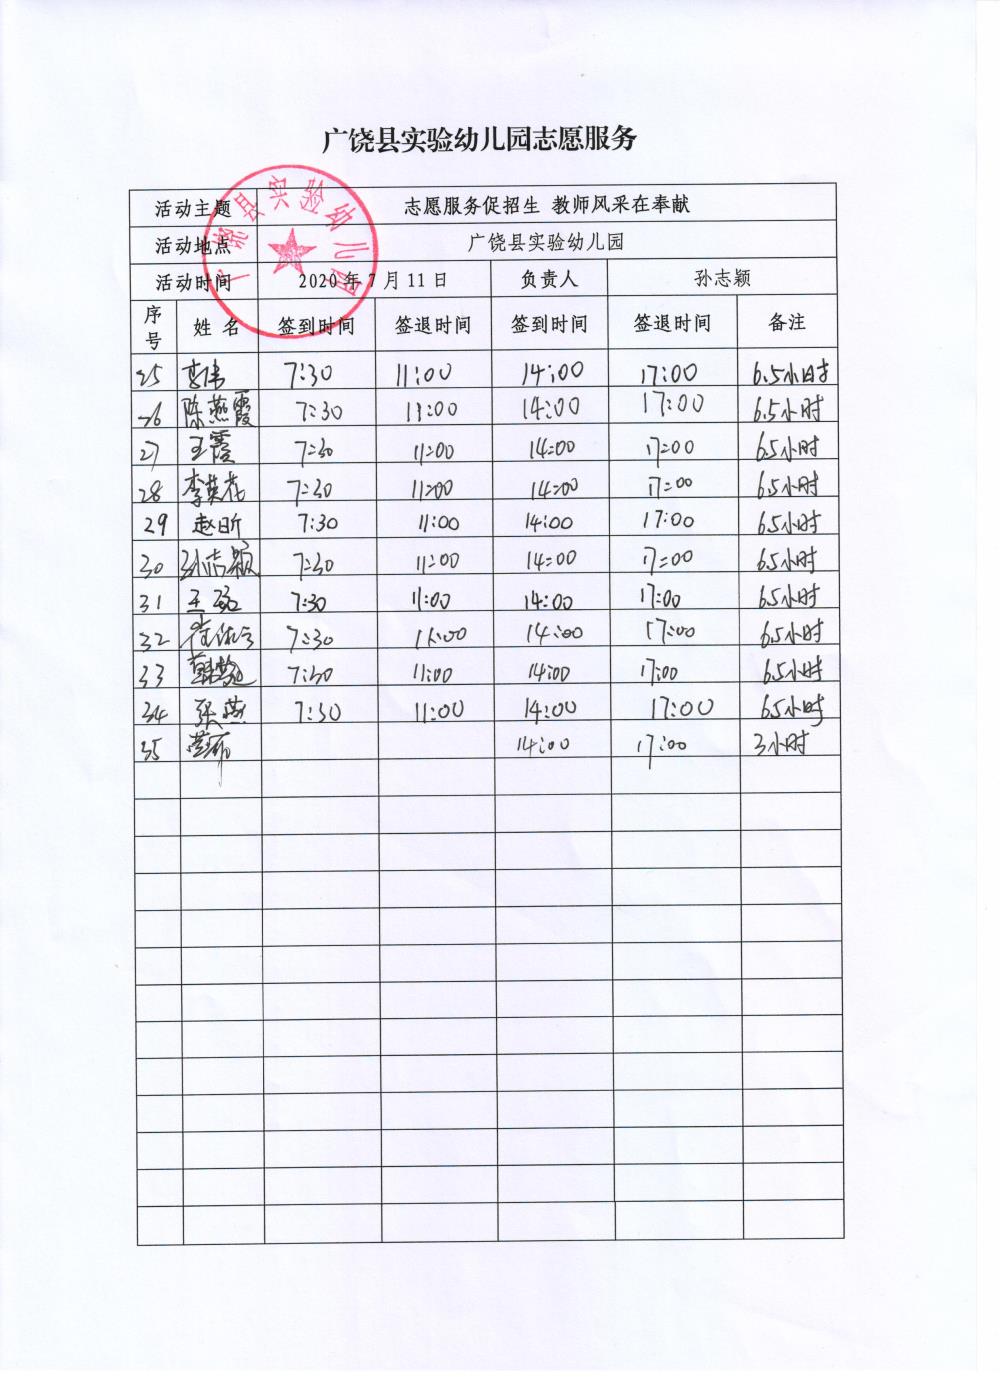 广饶县实验幼儿园志愿服务
活动主题 志愿服务促招生 教师风采在奉献
活动地点 广饶县实验幼儿园
活动时间 2020年7月11日 负责人 孙志颖
广饶县实验幼儿园
序号 姓名 签到时间 签退时间 签到时间 签退时间 备注
25 李伟 7:30 11:00 14:00 17:00 6.5小时
26 陈燕霞 7:30 11:00 14:00 17:00 6.5小时
27 王霞 7:30 11:00 14:00 17:00 6.5小时
28 李英花 7:30 11:00 14:00 17:00 6.5小时
29 赵昕 7:30 11:00 14:00 17:00 6.5小时
30 孙志颖 7:30 11:00 14:00 17:00 6.5小时
31 王 7:30 11:00 14:00 17:00 6.5小时
32 7:30 11:00 14:00 17:00 6.5小时
33 7:30 11:00 14:00 17:00 6.5小时
34 张燕 7:30 11:00 14:00 17:00 6.5小时
35 14:00 17:00 3小时